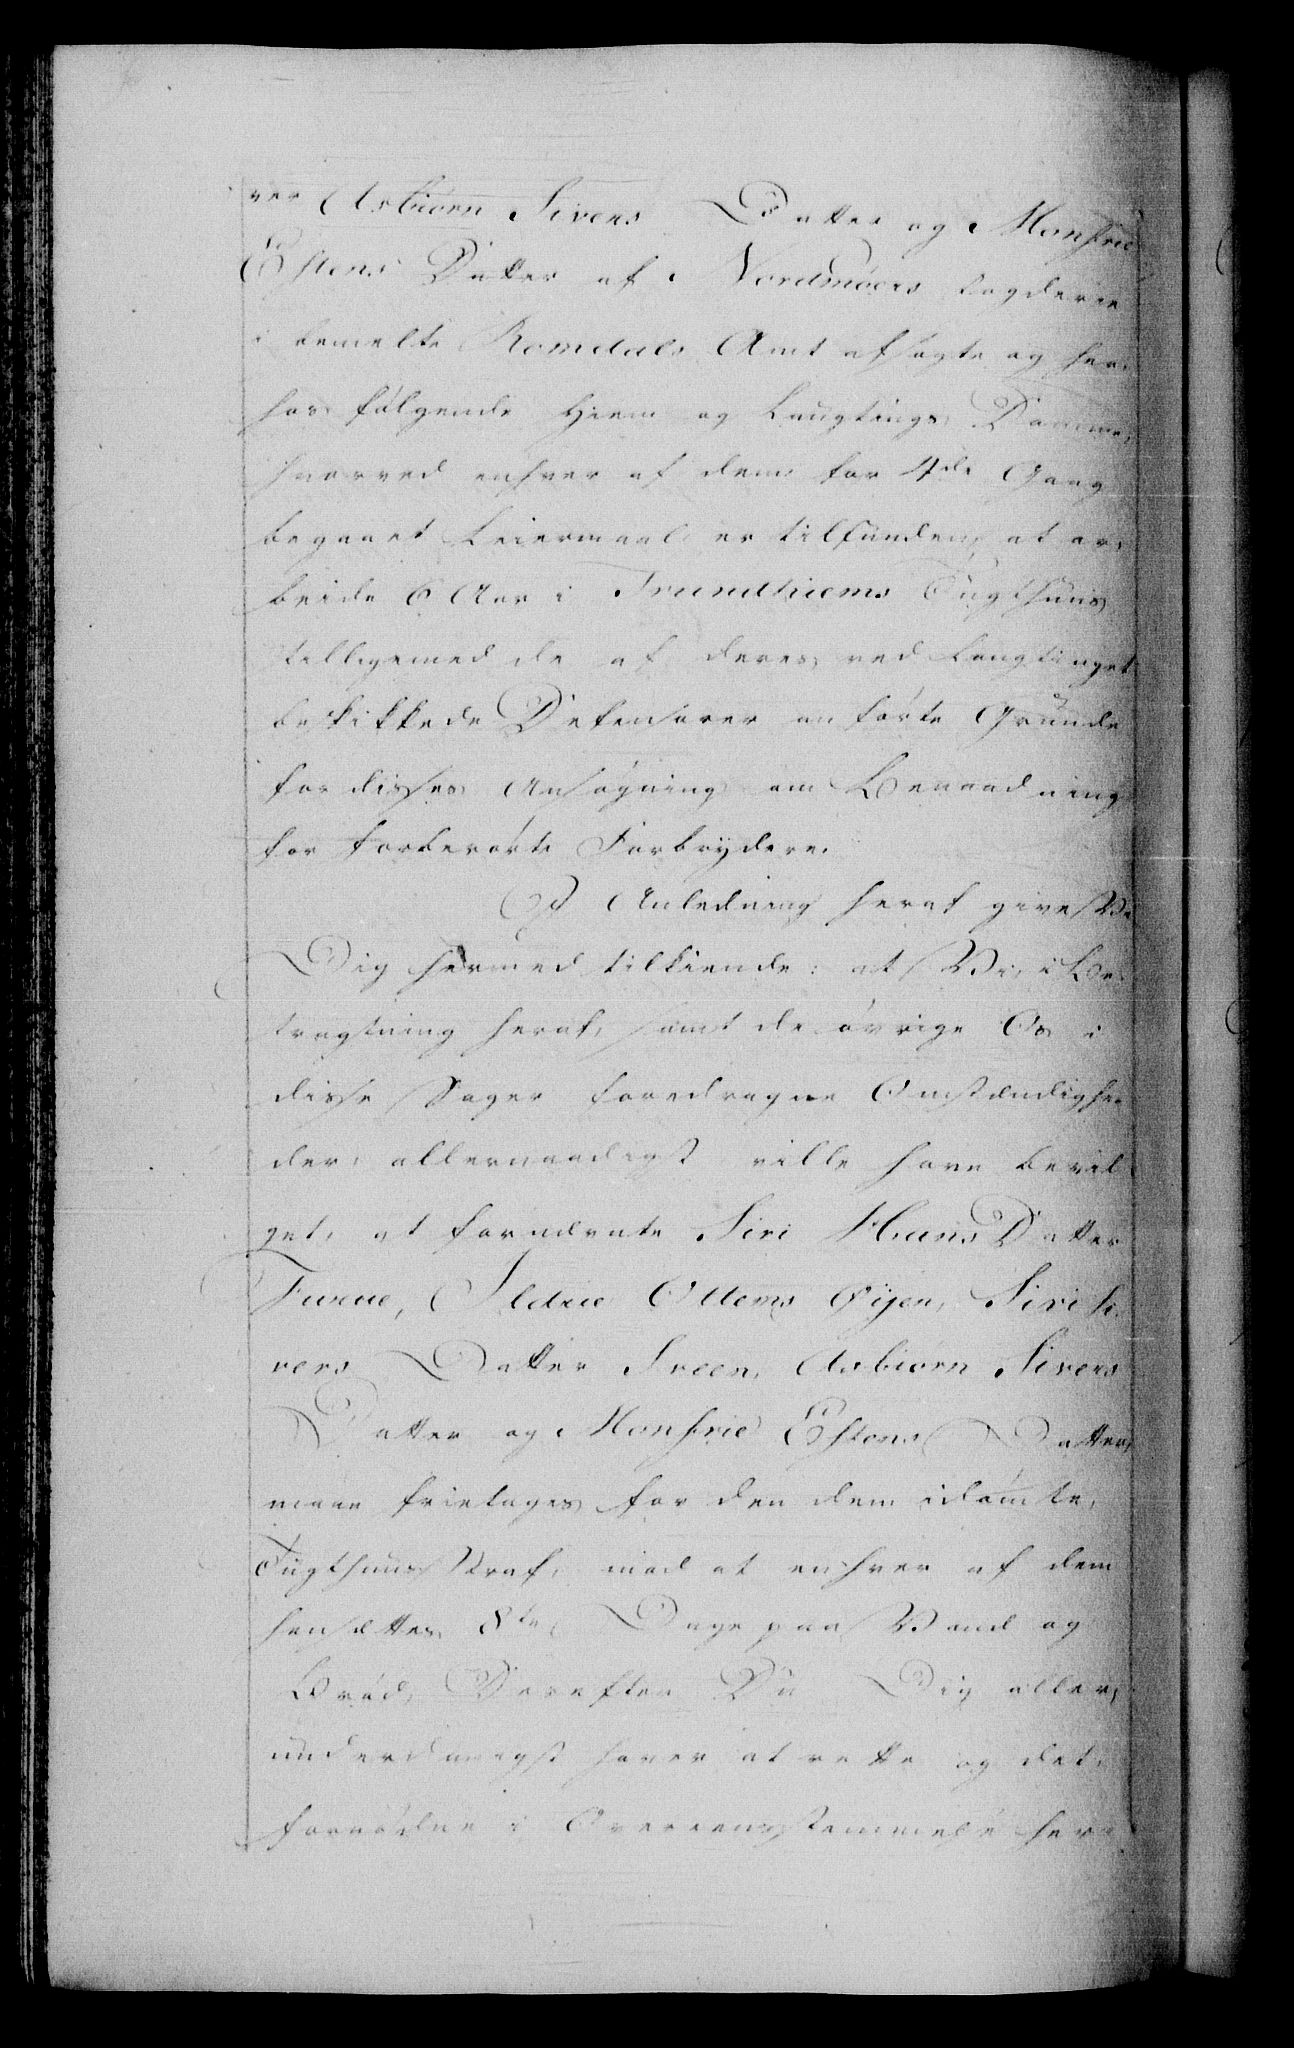 ver Asbiørn Sivers Datter og Monfrie
Estens Datter af Nordmøers Fogderie
i bemelte Romdals Amt afsagte og her-
hos følgende Hiem og Laugtings Domme,
hvorved enhver af dem for 4de Gang
begaaet Leiermaal er tilfunden, at ar-
beide 6 Aar i Trundhiems Tugthuus,
tilligemed de af deres, ved Laugtinget
beskikkede Defensorer anførte Grunde
for disses Ansøgning om Benaadning
for forberørte Forbrydere.
I Anledning heraf give Vi
Dig hermed tilkiende: at Vi, i Be-
tragtning heraf, samt de øvrige Os i
disse Sager foredragne Omstændighe-
der, allernaadigst ville have bevil-
get, at fornævnte Siri Huns Datter
Furue, Ildrie Ottems Øijen, Siri Si-
vers Datter Sveen, Asbiørn Sivers
Datter og Monfrie Estens Datter,
maae fritages for den dem idømte
Tugthuus Straf, mod at enhver af dem
hensættes 8te Dage paa Vand og
Brød. Derefter Du Dig aller-
underdanigst haver at rette og det
fornødne i Overeensstemmelse her-